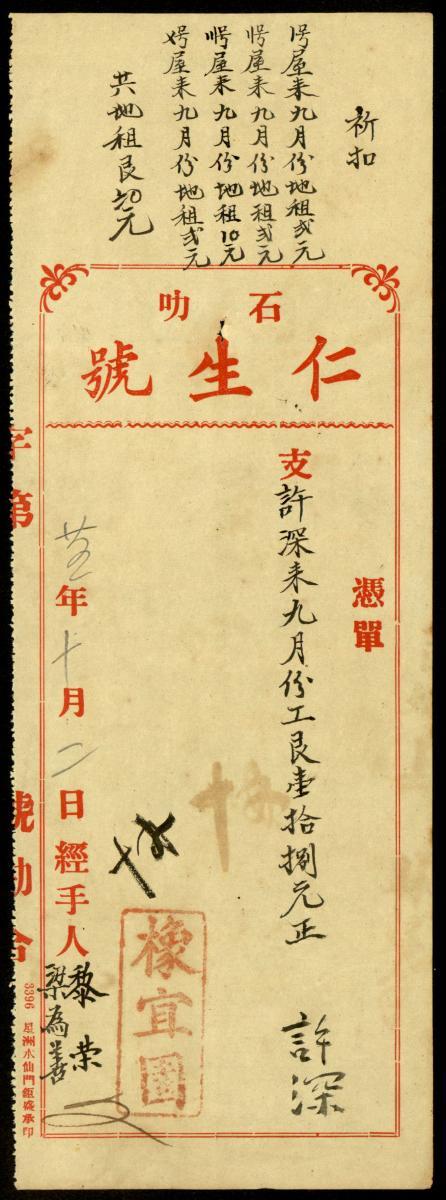 祈扣
号屋来九月份地租弍元
号屋来九月份地租弍元
号屋来九月份地租10元
号屋来九月份地租弍元
共地租艮元
石叻
仁生號
憑單
支許深来九月份工艮壹拾捌元正
許深
橡宜園
廿五年十月二日經手人
黎荣
梁為善
字第 號勘合
3396 星洲水仙門鉅盛承印